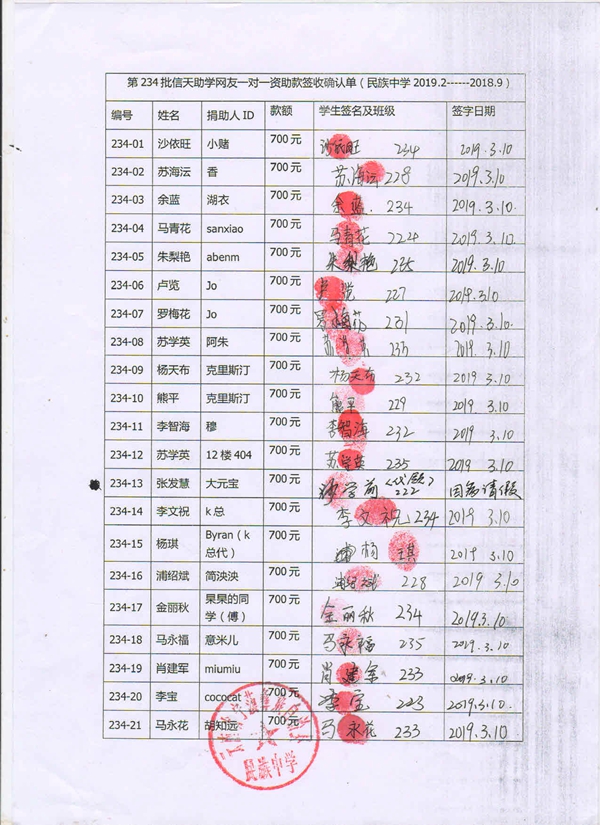 第 234 批信天助学网友一对一资助款签收确认单（民族中学 2019.2------2018.9）
编号 姓名 捐助人 ID 款额 学生签名及班级 签字日期
234-01 沙依旺 小赌 700 元 沙依旺 234 2019.3.10
234-02 苏海沄 香 700 元 苏海沄 228 2019.3.10
234-03 余蓝 湖衣 700 元 余蓝 234 2019.3.10.
234-04 马青花 sanxiao 700 元 马青花 224 2019.3.10
234-05 朱梨艳 abenm 700 元 朱梨艳 235 2019.3.10
234-06 卢览 Jo 700 元 卢览 227 2019.3.10
234-07 罗梅花 Jo 700 元 罗梅花 231 2019.3.10.
234-08 苏学英 阿朱 700 元 苏 235 2019.3.10
234-09 杨天布 克里斯汀 700 元 杨天布 232 2019 3.10
234-10 熊平 克里斯汀 700 元 熊平 229 2019.3.10
234-11 李智海 穆 700 元 李智海 232 2019.3.10
234-12 苏学英 12 楼 404 700 元 苏学英 235 2019 3.10
234-13 张发慧 大元宝 700 元 学前（代领）222 因为请假
234-14 李文祝 k 总 700 元 李文祝 234 2019 3.10
234-15 杨琪 Byran（k
总代） 700 元 杨 琪 2019 3.10
234-16 浦绍斌 简泱泱 700 元 浦绍斌 228 2019 3.10
234-17 金丽秋 杲杲的同
学（傅） 700 元 金丽秋 234 2019.3.10
234-18 马永福 意米儿 700 元 马永福 235 2019.3.10
234-19 肖建军 miumiu 700 元 肖建军 233 2019.3.10
234-20 李宝 cococat 700 元 李宝 223 2019.3.10.
234-21 马永花 胡知远 700 元 马永花 233 2019.3.10
民族中学